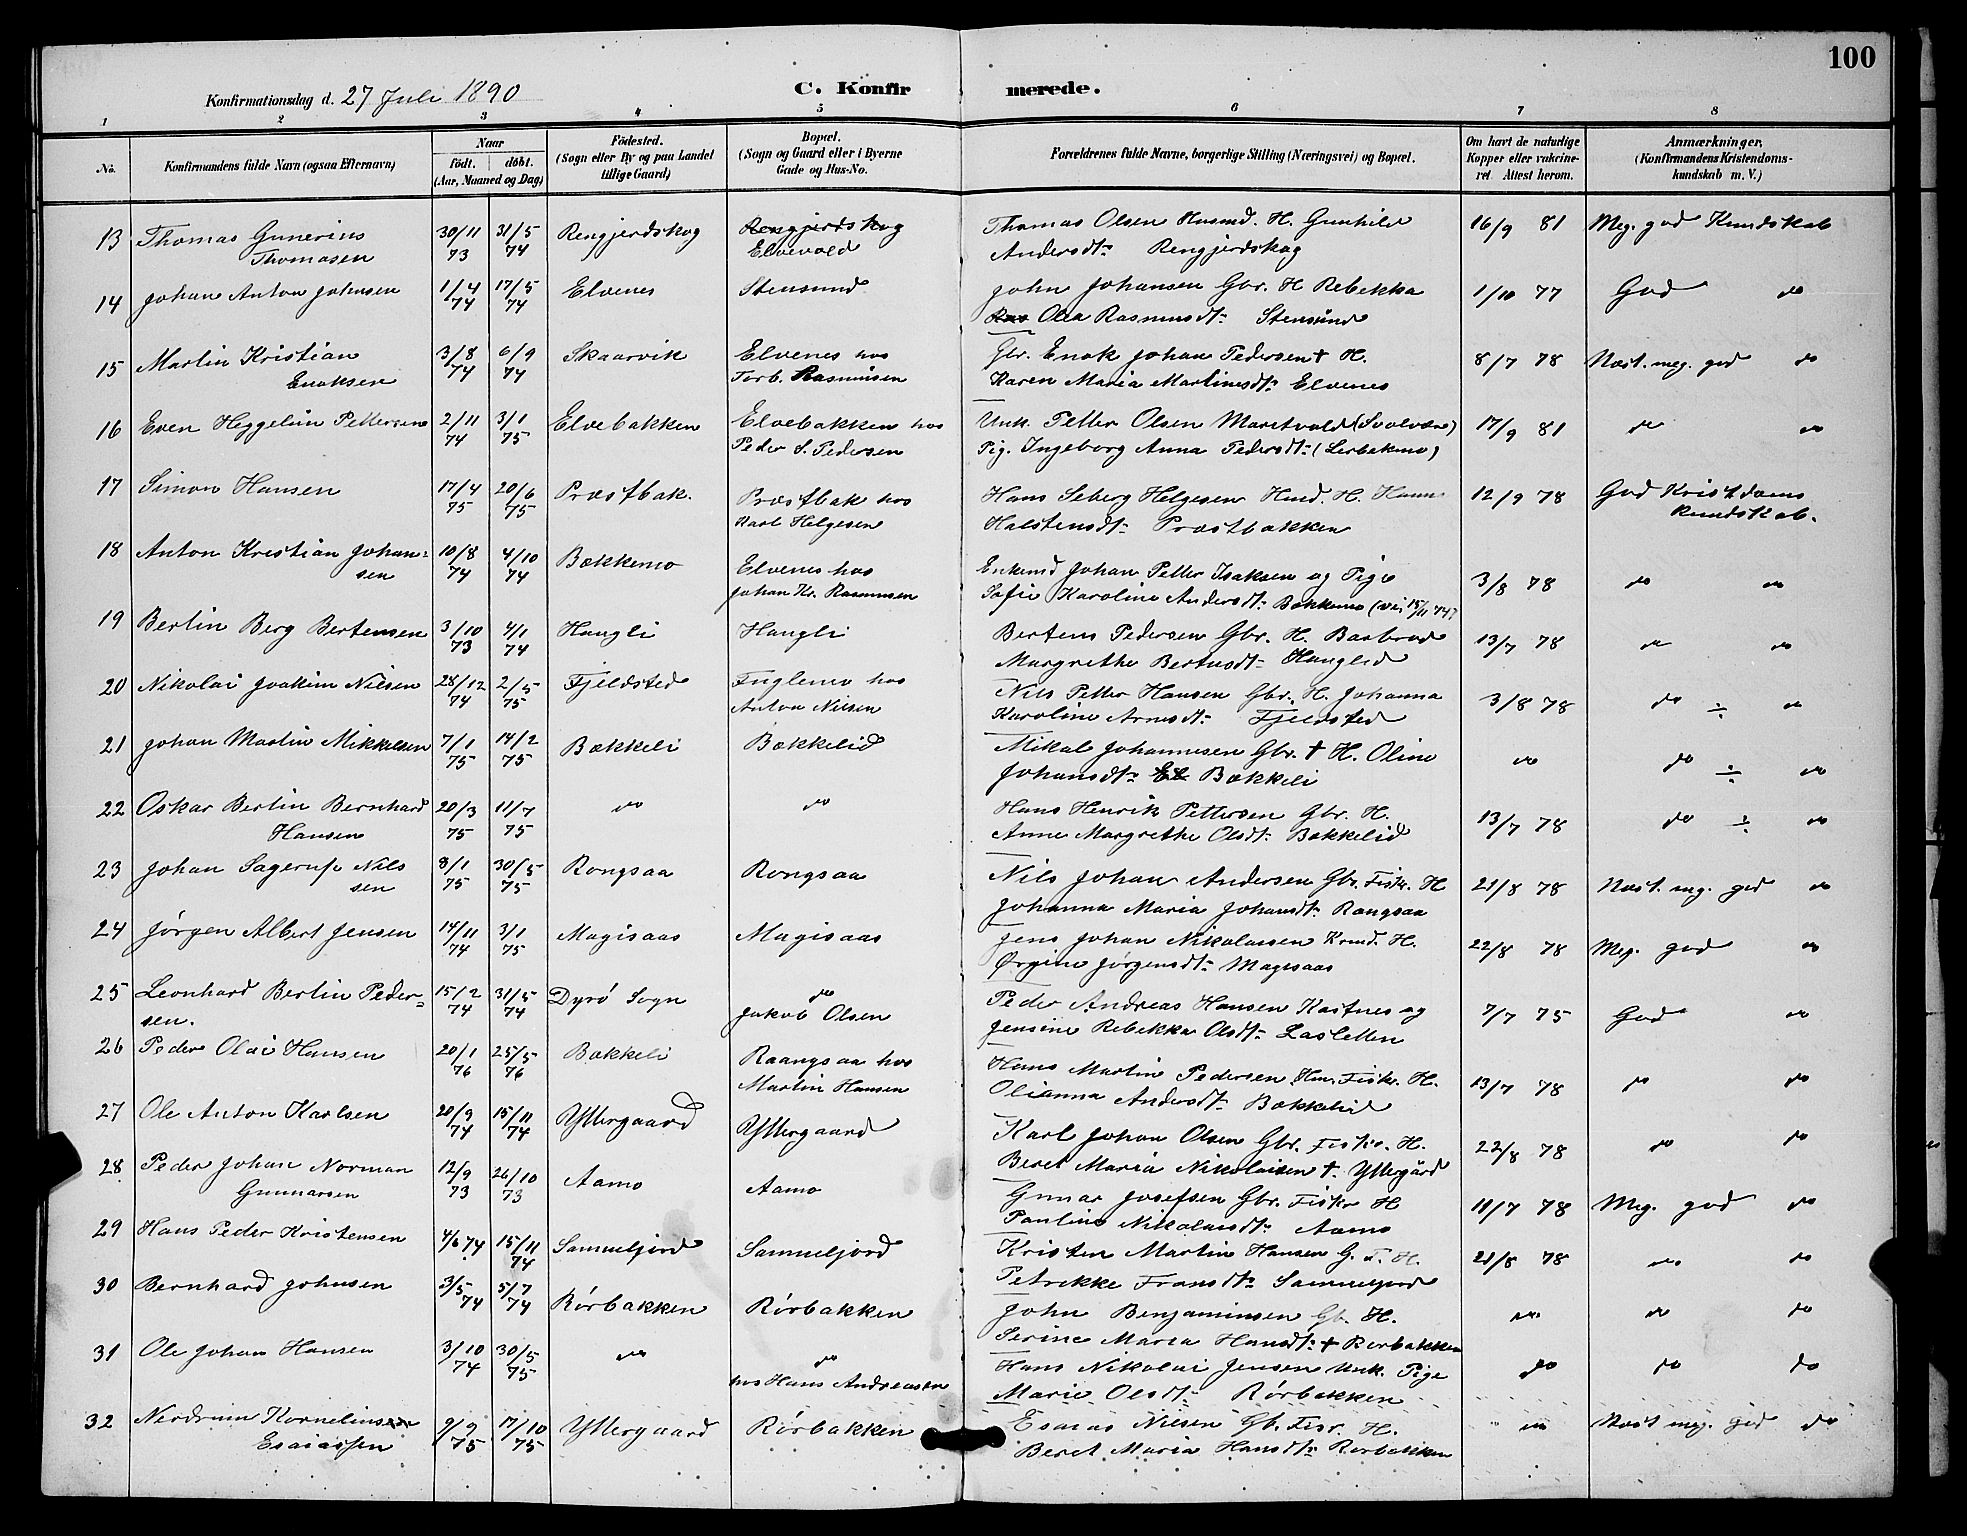 100
Konfirmationsdag d. 27 Juli 1890
C. Konfirmerede.
1 2 3 4 5 6 7 8
No.
Konfirmandens fulde Navn (ogsaa Efternavn)
Naar
födt. döbt.
(Aar, Maaned og Dag)
Födested.
(Sogn eller By og paa Landet
tillige Gaard)
Bopæl.
(Sogn og Gaard eller i Byerne
Gade og Hus-No.
Forældrenes fulde Navne, borgerlige Stilling (Næringsvei) og Bopæl.
Om havt de naturlige
Kopper eller vakcine-
ret. Attest herom.
Anmærkninger,
(Konfirmandens Kristendoms-
kundskab m. V.)
13 Thomas Gunerius 30/11 31/5 Rengjerdskog Rengjerdskog Thomas Olsen Husmd. H. Gunhild 16/9 81 Meg. god Kundskab
Thomasen 73 74 Elvevold Andersdt. Rengjerdskog
14 Johan Anton Johnsen 1/4 17/5 Elvenes Stensund John Johansen Gbr. H. Rebekka 1/10 77 God do
74 74 Olea Rasmusdt. Stensund
15 Martin Kristian 3/8 6/9 Skaarvik Elvenes hos Gbr. Enok Johan Pedersen † H. 8/7 78 Næst. meg. god do
Enoksen 74 74 Torb. Rasmussen Karen Maria Martinesdt. Elvenes
16 Even Heggelun Pettersen 2/11 3/1 Elvebakken Elvebakken hos Unk. Petter Olsen (Svolvær) 17/9 81 do do
74 75 Peder S. Pedersen Pig. Ingeborg Anna Pedersdt.
17 Simon Hansen 17/4 20/6 Præstbak. Præstbak hos Hans Seberg Helgesen H. 12/9 78 God Kristdoms
75 75 Karl Helgesen Halstensdt. Præstbakken kundskab.
18 Anton Kristian Johan- 10/8 4/10 Bækkemo Elvenes hos Enkemd Johan Petter Isaksen og Pige 3/8 78 do do
sen 74 74 Johan Kr. Rasmussen Sofie Karoline Andersdt. Bækkemo
19 Bertin Berg Bertensen 3/10 4/1 Haugli Haugli Bertens Pedersen Gbr. H. Barbroe 13/7 78 do do
73 74 Margrethe Bertusdt. Hauglid
20 Nikolai Joakim Nilsen 28/12 2/5 Fjeldsted Fuglemo hos Nils Petter Hansen Gbr. H. Johanna 3/8 78 do ÷ do
74 75 Anton Nilsen Karoline Arnesdt. Fjeldsted
21 Johan Martin Mikkelsen 7/1 14/2 Bækkeli Bækkelid Mikal Johannesen Gbr. † H. Oline do do ÷ do
75 75 Johansdt. Bækkeli
22 Oskar Bertin Bernhard 20/3 11/7 do do Hans Henrik Pettersen Gbr. H. 13/7 78 do ÷ do
Hansen 75 75 Anne Margrethe Olsdt. Bækkelid
23 Johan Sagerup Nils 8/1 30/5 Rongsaa Rongsaa Nils Johan Andersen Gbr. Fisk. H 21/8 78 Næst. mg. god do
sen 75 75 Johanna Maria Johansdt. Rangsaa
24 Jørgen Albert Jensen 14/11 3/1 Magisaas Magisaas Jens Johan Nikolaisen H. 22/8 78 Meg. god do
74 75 Ørgine Jørgensdt. Magisaas
25 Leonhard Bertin Peder- 15/2 31/5 Dyrö Sogn do Peder Andreas Hansen Kastnes og 7/7 75 God do
sen. 74 74 Jakob Olsen Jensine Rebekka Olsdt. Lasletten
26 Peder Olai Hansen 20/1 25/5 Bækkeli Raangsaa hos Hans Martin Pedersen Fiskr. H. 13/7 78 do do
76 76 Martin Hansen Olianna Andersdt. Bækkelid
27 Ole Anton Karlsen 20/9 15/11 Yttergaard Yttergaard Karl Johan Olsen Gbr. Fiskr. H. 22/8 78 do do
74 74 Beret Maria Nikolaisen †. Yttergård
28 Peder Johan Norman 12/9 26/10 Aamo Aamo Gunar Josefsen Gbr. Fiskr H 11/7 78 Meg. god do
Gunnarsen 73 73 Pauline Nikolaisdt. Aamo
29 Hans Peder Kristensen 4/6 74 15/11 Samueljord Samueljord Kristen Martin Hansen G. F. H. 21/8 78 do do
74 Petrikke Fransdt. Samueljord
30 Bernhard Johnsen 3/5 5/7 Rörbakken Rörbakken John Benjaminsen Gb. H. do do do
74 74 Serine Maria Hansdt. † Rørbakken
31 Ole Johan Hansen 3/10 30/5 do do Hans Nikolai Jensen Unk. Pige do do do
74 75 hos Hans Andreassen Marie Olsdt. Rörbakken
32 Nerdrum Kornelius 9/9 17/10 Yttergaard Rörbakken Esaias Nilsen Gb. Fisr. H. do Næst meg. god do
Esaiassen 75 75 Beret Maria Hansdt. Rørbakken